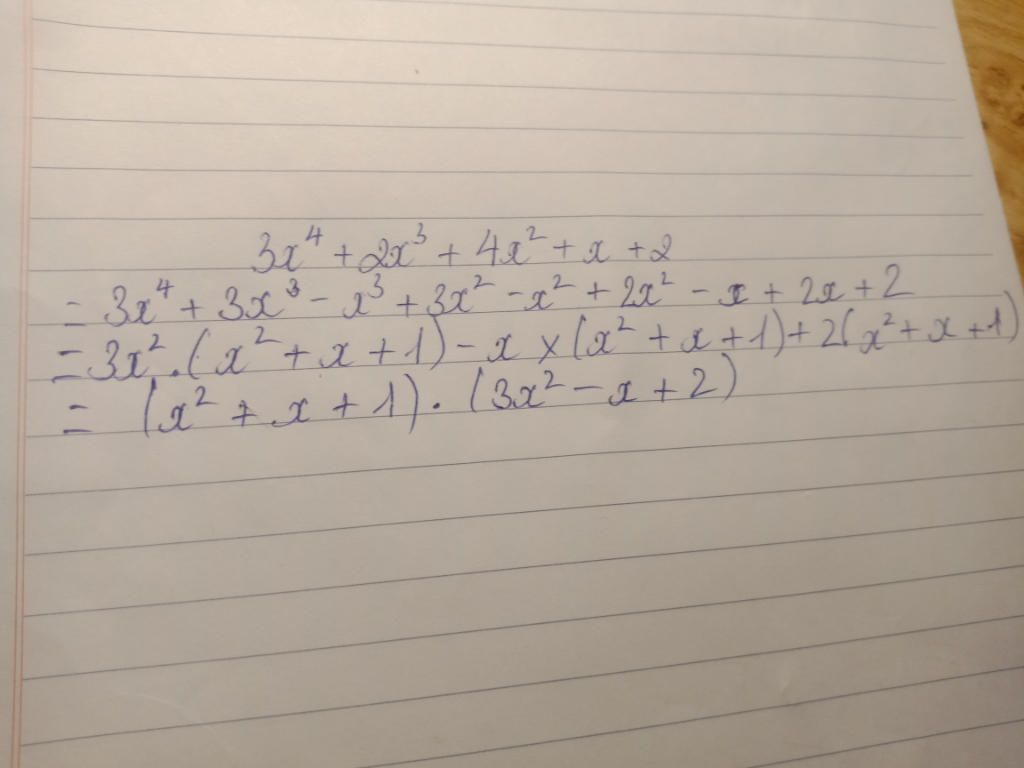 3x⁴ + 2x³ + 4x² + x + 2
= 3x⁴ + 3x³ - x³ + 3x² - x² + 2x² - x + 2x + 2
= 3x² . (x² + x + 1) - x × (x² + x + 1) + 2(x² + x + 1)
= (x² + x + 1) . (3x² - x + 2)